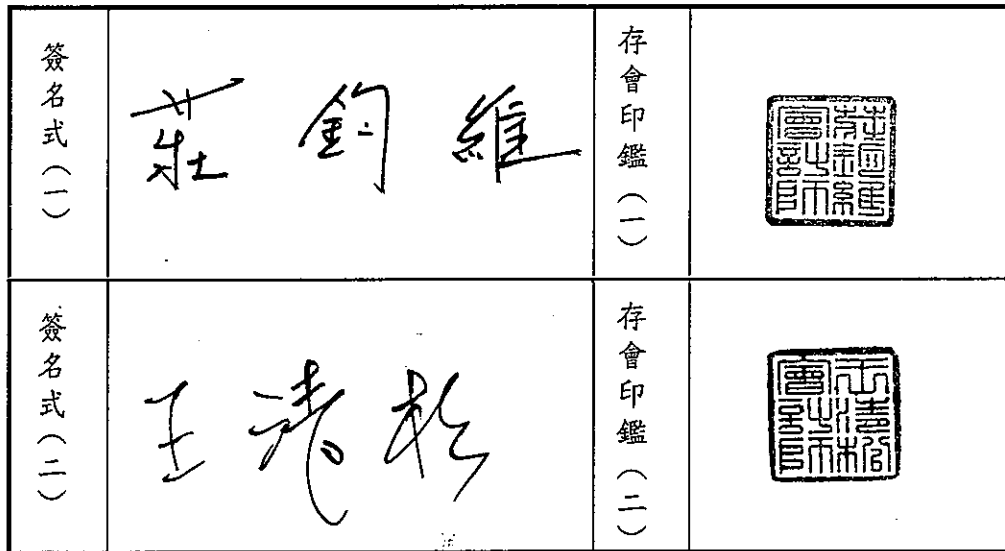 簽名式(一)
莊鈞維
存會印鑑(一)
莊鈞維
會計師
簽名式(二)
王清松
存會印鑑(二)
王清松
會計師